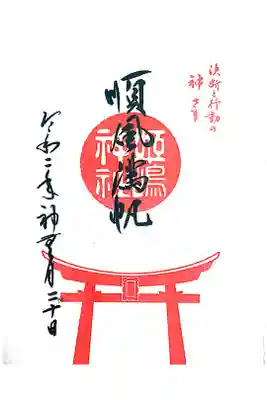 決断と行動の
神さま
順風満帆
神社
令和二年神無月二十日